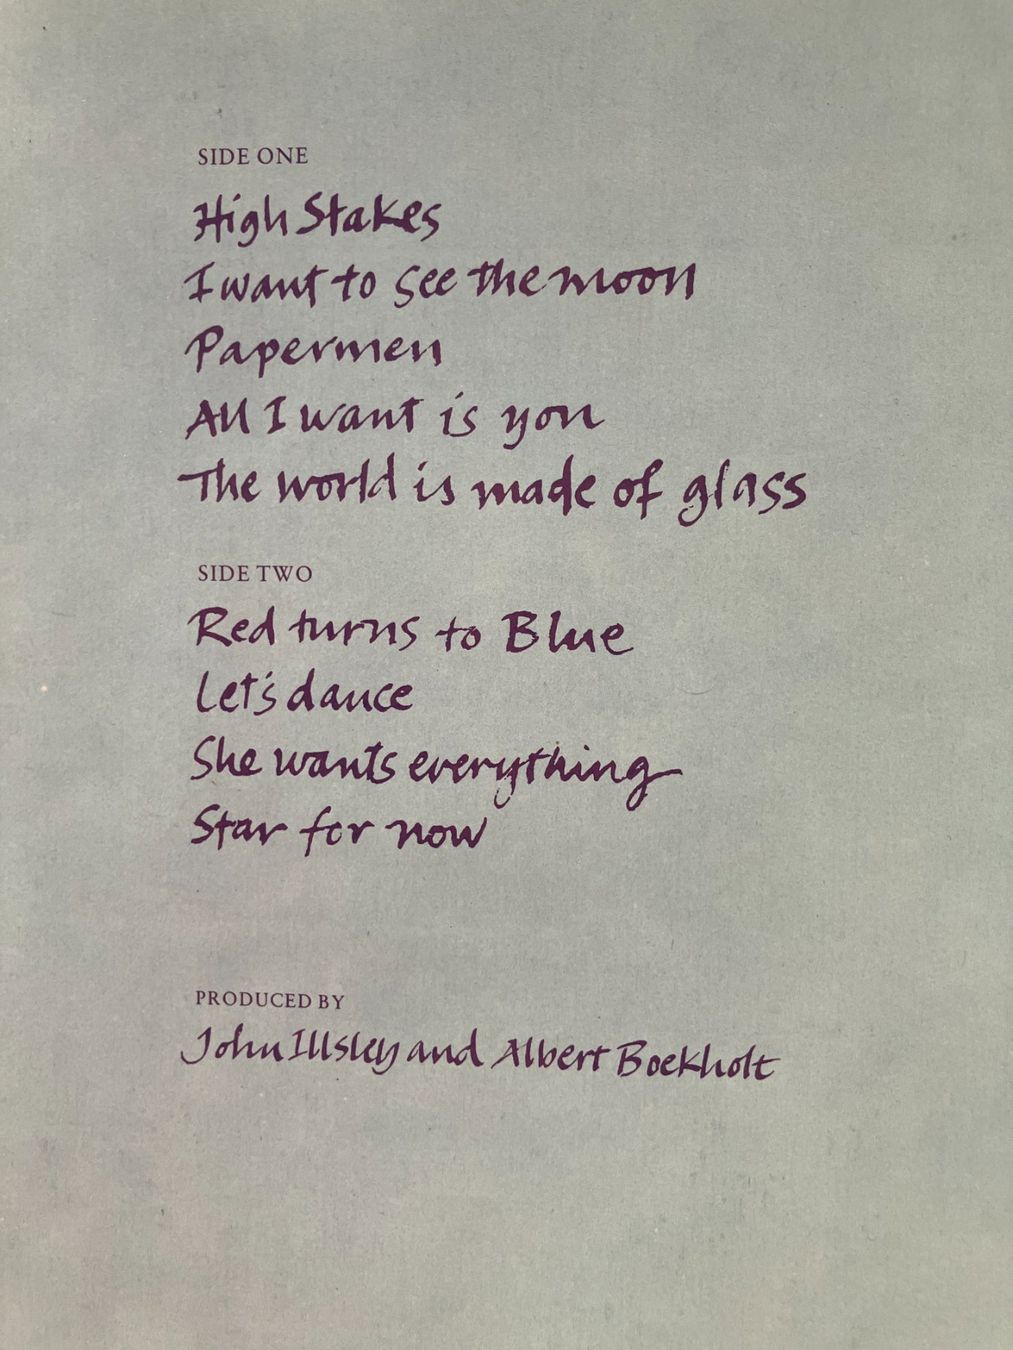 SIDE ONE
High Stakes
I want to see the moon
Papermen
All I want is you
The world is made of glass
SIDE TWO
Red turns to Blue
Let's dance
She wants everything
Star for now
PRODUCED BY
John Illsley and Albert Boekholt